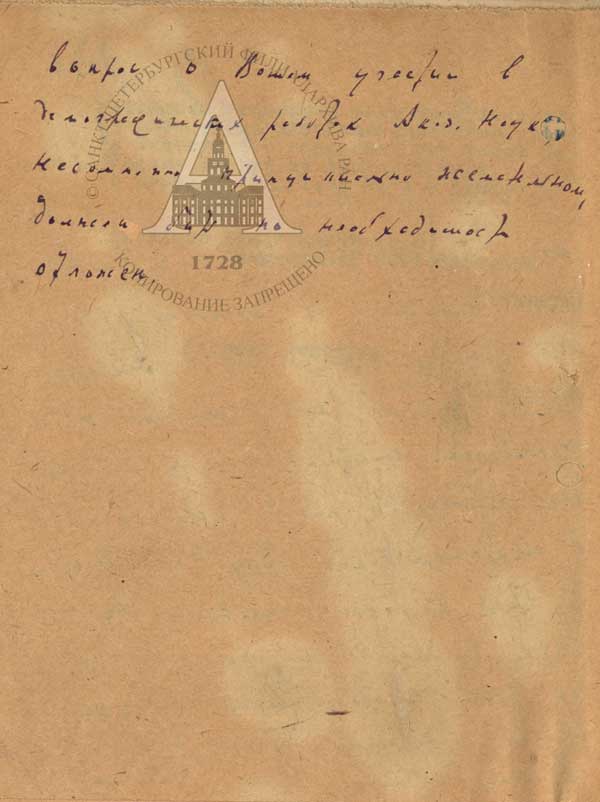 вопрос о Вашем участии в
демографических работах Акад. Наук,
несомненно принципиально желательном,
должен быть по необходимости
отложен
© САНКТ-ПЕТЕРБУРГСКИЙ ФИЛИАЛ АРХИВА РАН
1728
КОПИРОВАНИЕ ЗАПРЕЩЕНО